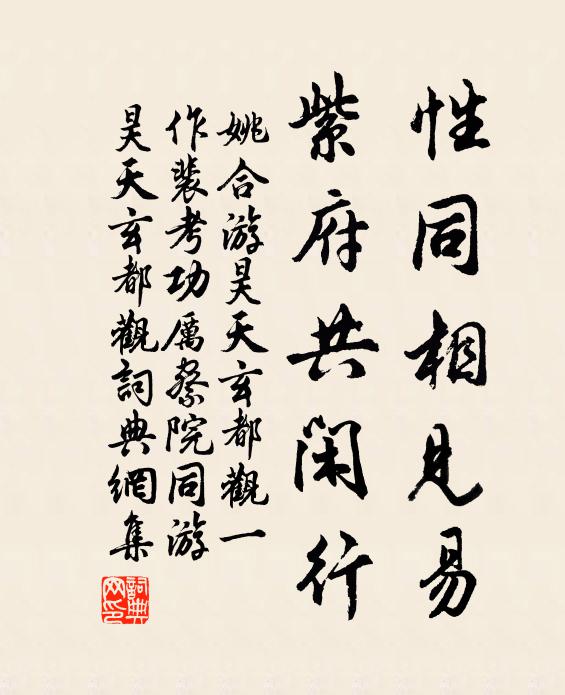 性同相見易
紫府共閑行
姚合游昊天玄都觀一
作裴考功厲察院同游
昊天玄都觀詞典網集
詞典
网印